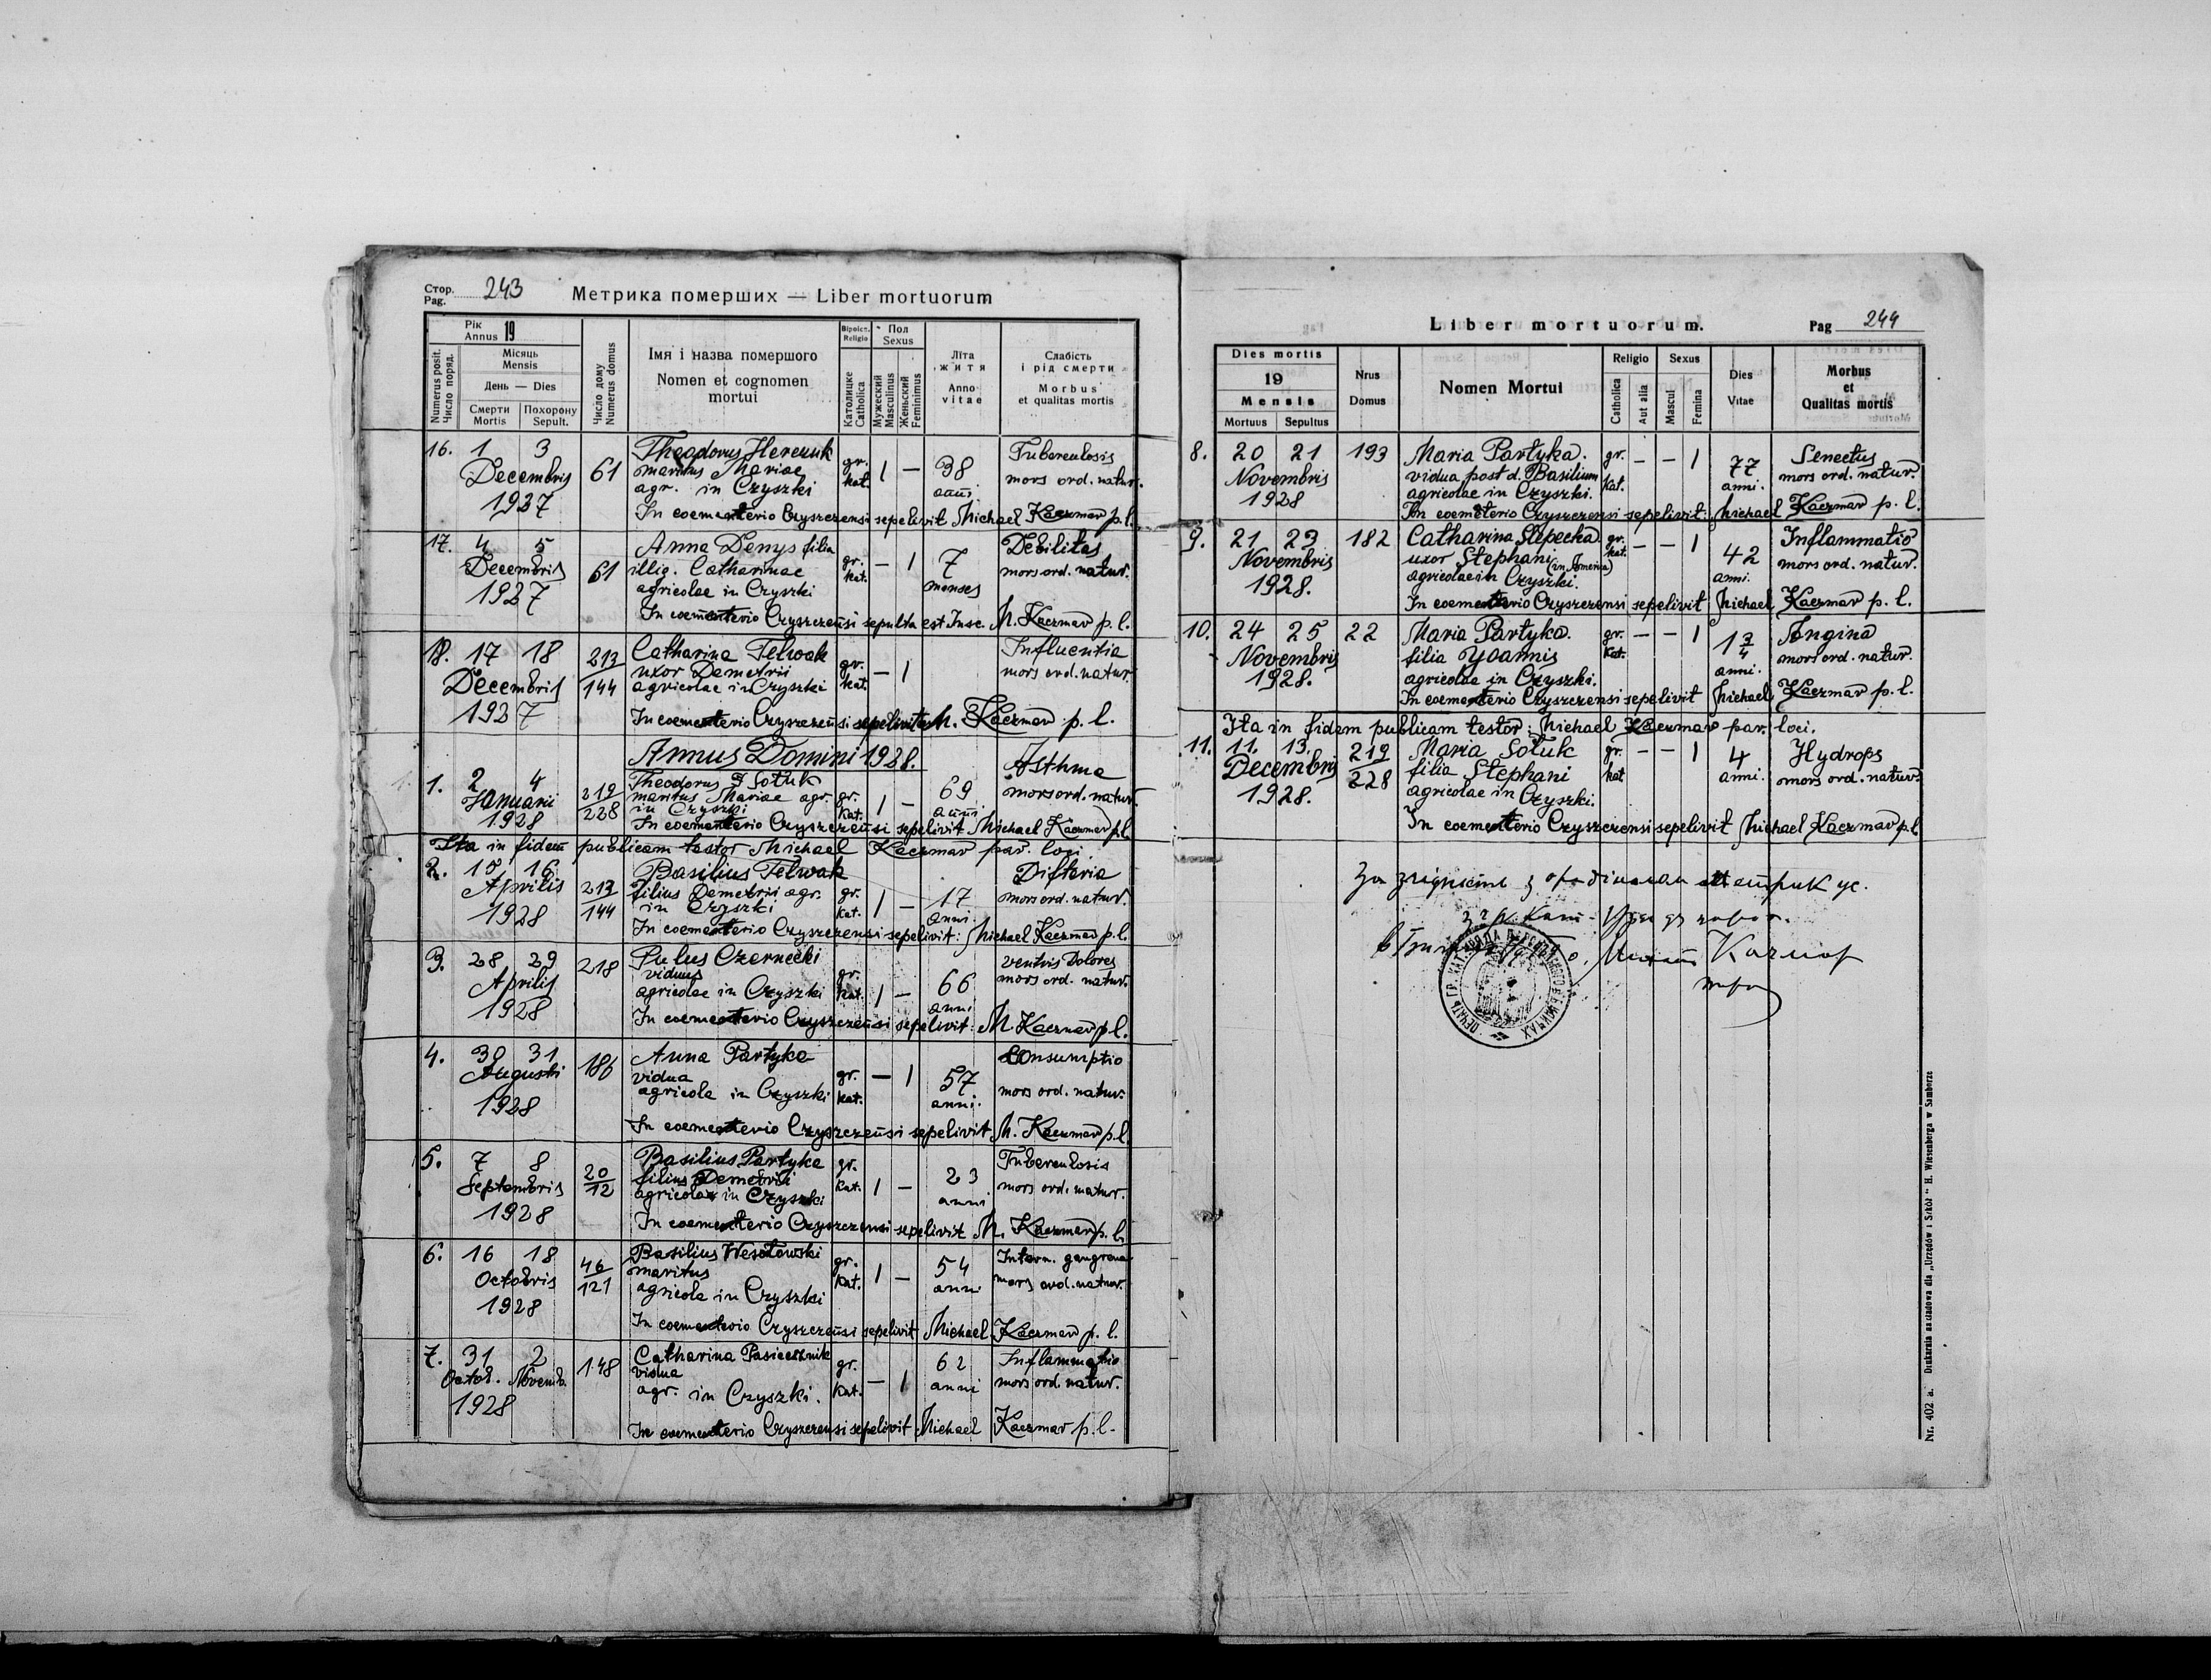 Стор. Pag. 243 Метрика померших — Liber mortuorum
Рік Annus 19
Numerus posit. Число поряд.
Місяць Mensis
День — Dies
Смерти Mortis
Похорону Sepult.
Число дому Numerus domus
Імя і назва помершого
Nomen et cognomen mortui
Віроісп. Religio
Католицке Catholica
Пол Sexus
Мужеский Masculinus
Женьский Femininus
Літа житя
Anno vitae
Слабість і рід смерти
Morbus et qualitas mortis
16. 1 3 Decembris 1927 61
Theodorus Hercuuk
maritus Mariae
agr. in Czyszki
gr. kat. 1 — 38 anni
Tuberculosis
mors ord. natur.
In coementerio Czyszczensi sepelivit Michael Kaczmar p. l.
17. 4 5 Decembris 1927 61
Anna Denys filia
illig. Catharinae
agricolae in Czyszki
gr. kat. — 1 7 menses
Debilitas
mors ord. natur.
In coementerio Czyszczensi sepulta est Insc. M. Kaczmar p. l.
18. 17 18 Decembris 1927 213/144
Catharina Telwak
uxor Demetrii
agricolae in Czyszki
gr. kat. — 1
Influentia
mors ord. natur.
In coementerio Czyszczensi sepelivit M. Kaczmar p. l.
Annus Domini 1928.
1. 2 4 Januarii 1928 219/228
Theodorus Sołuk
maritus Mariae agr.
in Czyszki
gr. kat. 1 — 69 anni
Asthma
mors ord. natur.
In coementerio Czyszczensi sepelivit Michael Kaczmar p. l.
Ita in fidem publicam testor Michael Kaczmar par. loci
2. 15 16 Aprilis 1928 213/144
Basilius Telwak
filius Demetrii agr.
in Czyszki
gr. kat. 1 — 17 anni
Difteria
mors ord. natur.
In coementerio Czyszczensi sepelivit: Michael Kaczmar p. l.
3. 28 29 Aprilis 1928 218
Czernecki
viduus
agricolae in Czyszki
gr. kat. 1 — 66 anni
ventris Dolores
mors ord. natur.
In coementerio Czyszczensi sepelivit: M Kaczmar p l.
4. 30 31 Augusti 1928 186
Anna Partyka
vidua
agricola in Czyszki
gr. kat. — 1 57 anni.
Consumptio
mors ord. natur.
In coementerio Czyszczensi sepelivit M. Kaczmar p. l.
5. 7 8 Septembris 1928 20/12
Basilius Partyka
filius Demetrii
agricolae in Czyszki
gr. kat. 1 — 23 anni
Tuberculosis
mors ord. natur.
In coementerio Czyszczensi sepelivit M. Kaczmar p. l.
6. 16 18 Octobris 1928 46/121
Basilius Wesołowski
maritus
agricola in Czyszki
gr. kat. 1 — 54 anni
Intern. gangrena
mors ord. natur.
In coementerio Czyszczensi sepelivit Michael Kaczmar p. l.
7. 31 2 Octob. Novemb. 1928 148
Catharina Pasiecznik
vidua
agr. in Czyszki.
gr. kat. — 1 62 anni
Inflammatio
mors ord. natur.
In coementerio Czyszczensi sepelivit Michael Kaczmar p. l.
Liber mortuorum. Pag 244
Dies mortis
19
Mensis
Mortuus Sepultus
Nrus Domus
Nomen Mortui
Religio
Catholica
Aut alia
Sexus
Mascul
Femina
Dies Vitae
Morbus et Qualitas mortis
8. 20 21 Novembris 1928 193
Maria Partyka.
vidua post d. Basilium
agricolae in Czyszki.
gr. kat. — — 1 77 anni.
Senectus
mors ord. natur.
In coementerio Czyszczensi sepelivit: Michael Kaczmar p. l.
9. 21 23 Novembris 1928. 182
Catharina Slepecka
uxor Stephani (in America)
agricolae in Czyszki.
gr. kat. — — 1 42 anni.
Inflammatio
mors ord. natur.
In coementerio Czyszczensi sepelivit Michael Kaczmar p. l.
10. 24 25 Novembris 1928. 22
Maria Partyka.
filia Yoannis
agricolae in Czyszki.
gr. kat. — — 1 1 3/4 anni.
Angina
mors ord. natur.
In coementerio Czyszczensi sepelivit Michael Kaczmar p. l.
Ita in fidem publicam testor: Michael Kaczmar par. loci.
11. 11. 13. Decembris 1928. 219/228
Maria Sołuk
filia Stephani
agricolae in Czyszki.
gr. kat — — 1 4 anni.
Hydrops
mors ord. natur.
In coementerio Czyszczensi sepelivit Michael Kaczmar p. l.
За згідність з
Nr. 402 a. Drukarnia nakładowa dla „Urzędów i Szkół" H. Wiesenberga w Samborze